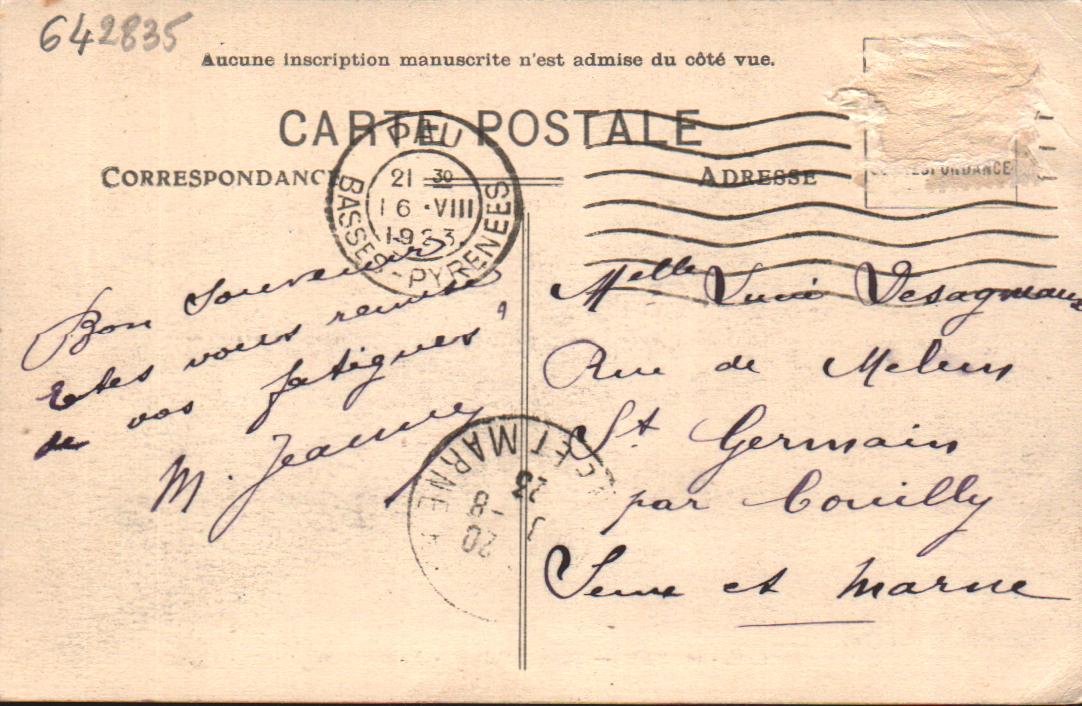 642835
Aucune inscription manuscrite n'est admise du côté vue.
CARTE POSTALE
CORRESPONDANCE
ADRESSE
PAU
21 30
16 ·VIII
1923
BASSES-PYRENEES
CORRESPONDANCE
Bon souvenir
Etes vous remise
de vos fatigues ?
M. Jeanne
Melle Lucie Desagneaux
Rue de Melun
St Germain
par Couilly
Seine et Marne
ET MARNE
20 - 8
23